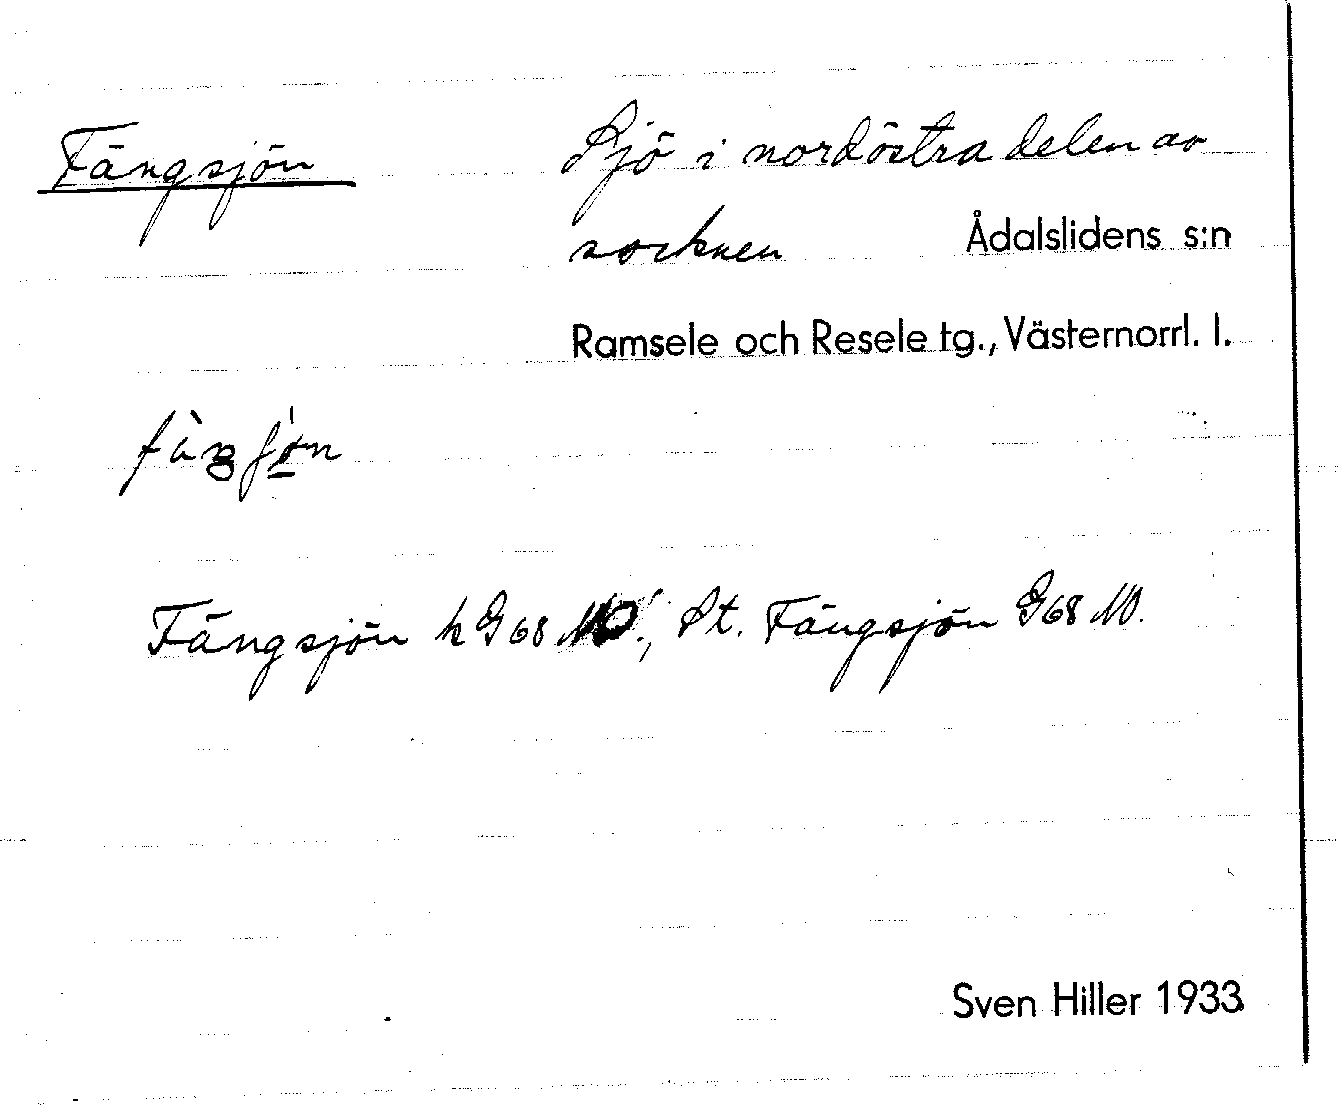 Fängsjön Sjö i nordöstra delen av
socknen Ådalslidens s:n
Ramsele och Resele tg., Västernorrl. l.
Fängsjön k G68 NO; St. Fängsjön G68 NO.
Sven Hiller 1933